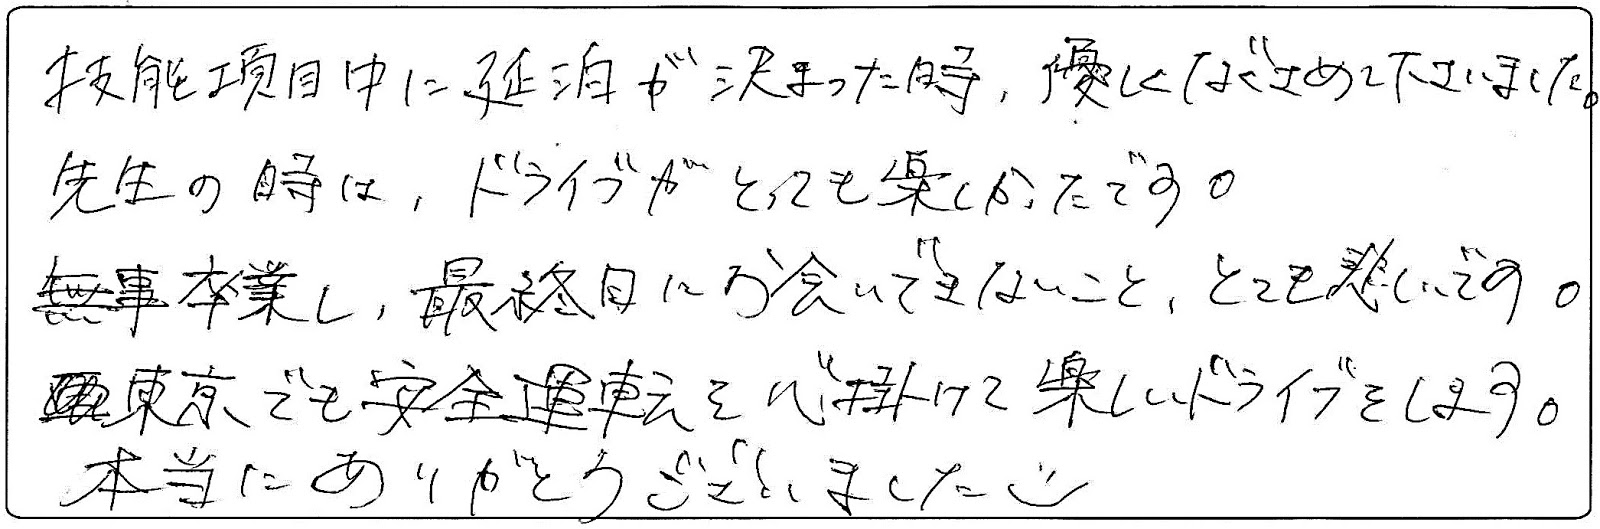 技能項目中に延泊が決まった時、優しくなぐさめて下さいました。
先生の時は、ドライブがとっても楽しかったです。
無事卒業し、最終日にお会いできないこと、とても悲しいです。
東京でも安全運転を心掛けて楽しいドライブをします。
本当にありがとうございました